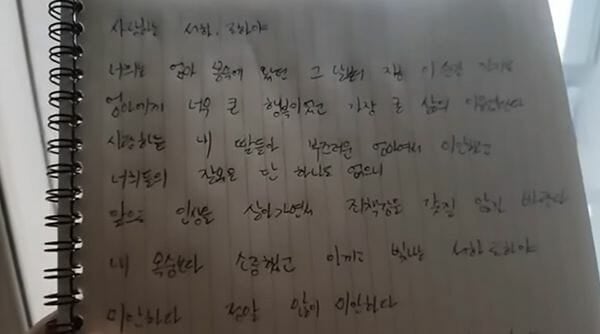 사랑하는 서하, 로하야
너희는 엄마 뱃속에 왔던 그 날부터 지금 이 순간 까지도
엄마에게 너무 큰 행복이었고 가장 큰 삶의 이유였단다
사랑하는 내 딸들아 부끄러운 엄마여서 미안했고
너희들의 잘못은 단 하나도 없으니
앞으로 인생을 살아가면서 죄책감을 갖진 않길 바란다
내 목숨보다 소중했고 아끼고 빛나는 서하 로하야
미안하다 정말 많이 미안하다